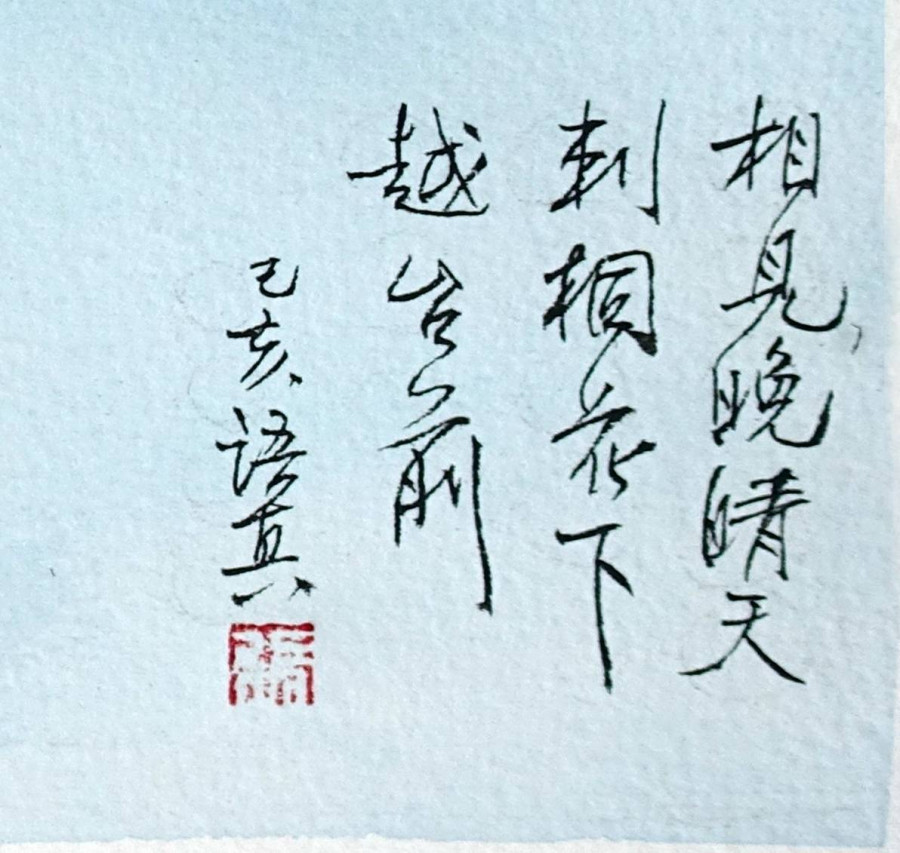 相見晚晴天
刺桐花下
越台前
己亥語真